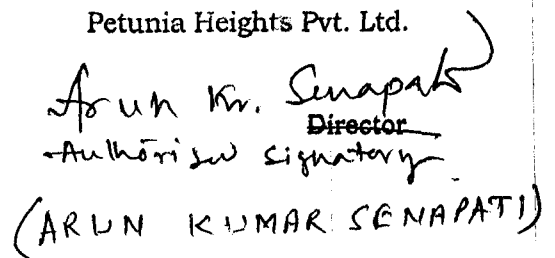 Petunia Heights Pvt. Ltd.
Arun Kr. Senapati
Director
Authorised Signatory
(ARUN KUMAR SENAPATI)